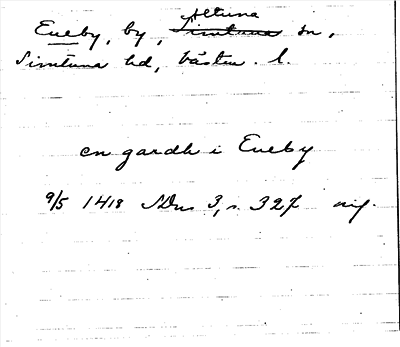 Altuna
Eneby, by, Simtuna sn,
Simtuna hd, Västm. l.
en gardh i Eneby
9/5 1418 SDns 3, s. 327 avs.